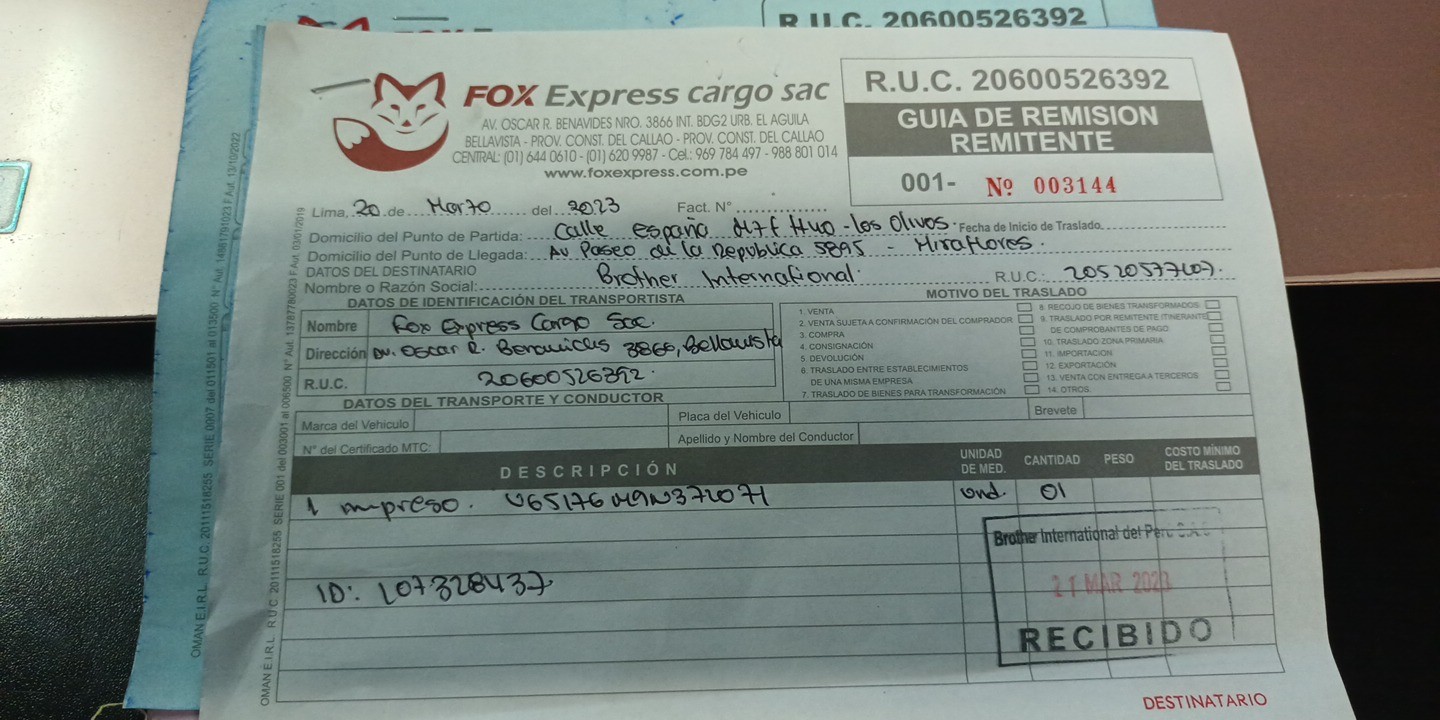 R.U.C. 20600526392
FOX Express cargo sac
AV. OSCAR R. BENAVIDES NRO. 3866 INT. BDG2 URB. EL AGUILA
BELLAVISTA - PROV. CONST. DEL CALLAO - PROV. CONST. DEL CALLAO
CENTRAL: (01) 644 0610 - (01) 620 9987 - Cel.: 969 784 497 - 988 801 014
www.foxexpress.com.pe
R.U.C. 20600526392
GUIA DE REMISION
REMITENTE
001- Nº 003144
Lima, 20 de Marzo del 2023 Fact. N°
Domicilio del Punto de Partida: Calle españa Mz E - Los Olivos. Fecha de Inicio de Traslado
Domicilio del Punto de Llegada: Av Paseo de la Republica 5895 - Miraflores.
DATOS DEL DESTINATARIO
Nombre o Razón Social: Brother International. R.U.C.: 20520577607.
DATOS DE IDENTIFICACIÓN DEL TRANSPORTISTA
Nombre Fox Express Cargo Sac.
Dirección Av. Oscar R. Benavides 3866, Bellavista
R.U.C. 20600526392.
MOTIVO DEL TRASLADO
1. VENTA
2. VENTA SUJETA A CONFIRMACIÓN DEL COMPRADOR
3. COMPRA
4. CONSIGNACIÓN
5. DEVOLUCIÓN
6. TRASLADO ENTRE ESTABLECIMIENTOS
DE UNA MISMA EMPRESA
7. TRASLADO DE BIENES PARA TRANSFORMACIÓN
8. RECOJO DE BIENES TRANSFORMADOS
9. TRASLADO POR REMITENTE ITINERANTE
DE COMPROBANTES DE PAGO
10. TRASLADO ZONA PRIMARIA
11. IMPORTACION
12. EXPORTACIÓN
13. VENTA CON ENTREGA A TERCEROS
14. OTROS
DATOS DEL TRANSPORTE Y CONDUCTOR
Marca del Vehiculo Placa del Vehiculo Brevete
N° del Certificado MTC: Apellido y Nombre del Conductor
DESCRIPCIÓN UNIDAD DE MED. CANTIDAD PESO COSTO MÍNIMO DEL TRASLADO
1 impreso. U65176M9N372071 Und. 01
ID: 107328437
Brother International del Perú S.A.C.
21 MAR 2023
RECIBIDO
DESTINATARIO
OMAN E.I.R.L. R.U.C. 20111518255 SERIE 001 del 003001 al 006500 N° Aut. 1378778023 F.Aut. 03/01/2019
OMAN E.I.R.L. R.U.C. 20111518255 SERIE 0007 del 011501 al 013500 N° Aut. 14861791023 F.Aut. 13/10/2022